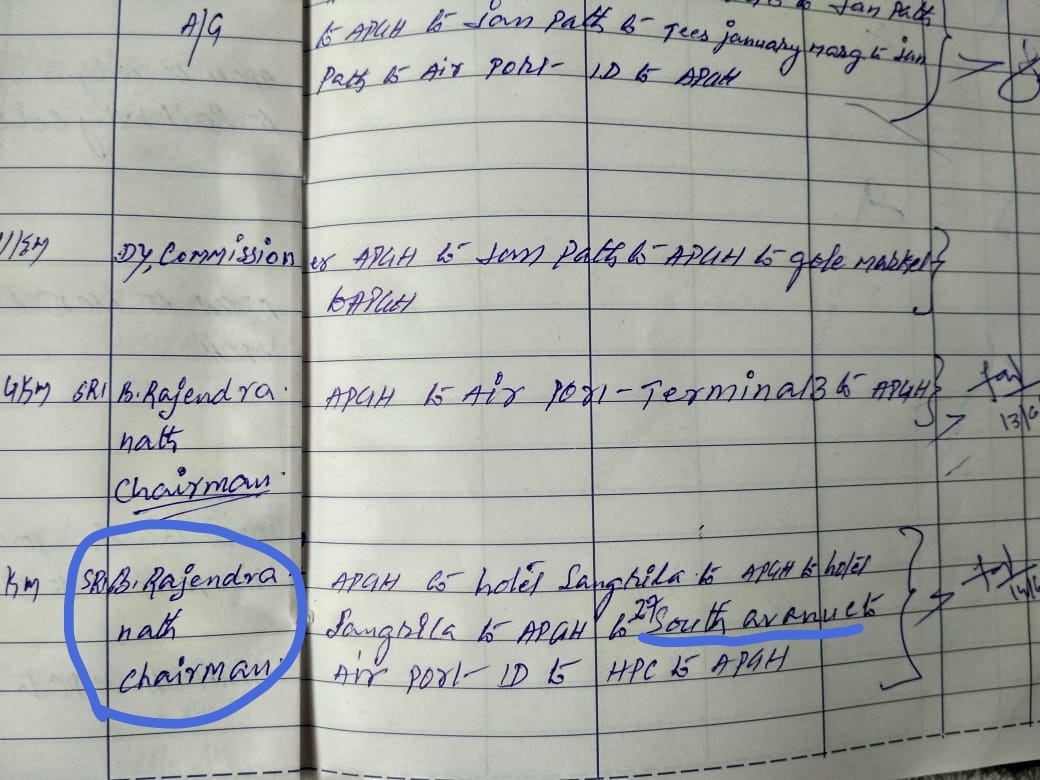 to Jan Path
A/G
to APGH to Jan Path to Tees january marg to Jan
Path to Air Port- ID to APGH
Dy, Commissioner APGH to Jan Path to APGH to gole market
to APGH
4Km SRI B. Rajendra. APGH to Air Port-Terminal 3 to APGH
nath 13/6
Chairman.
Km SRI B. Rajendra. APGH to hotel Sangrila to APGH to hotel
nath Sangrila to APGH to 27 South avanue to
Chairman. Air Port- ID to HPC to APGH